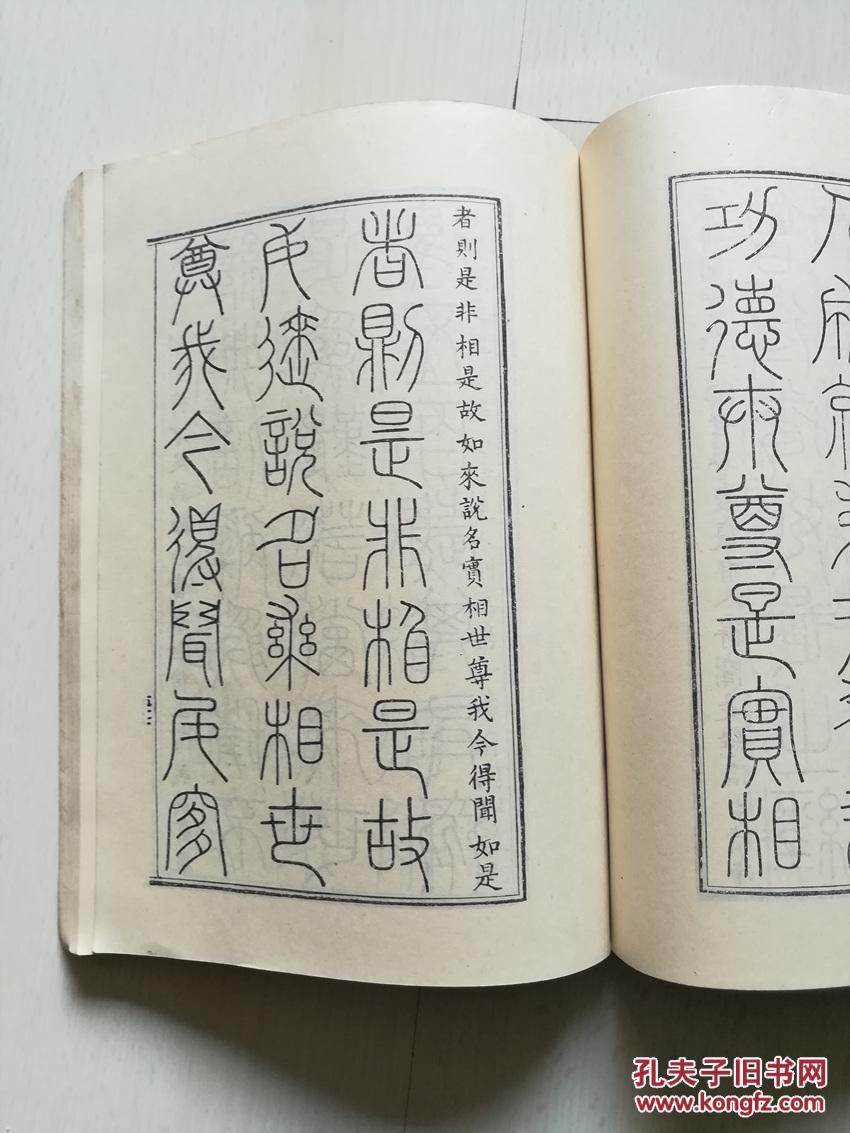 功德世尊是實相
者則是非相是故如來說名實相世尊我今得聞如是
者則是非相是故
如來說名實相世
尊我今得聞如是
孔夫子旧书网
www.kongfz.com